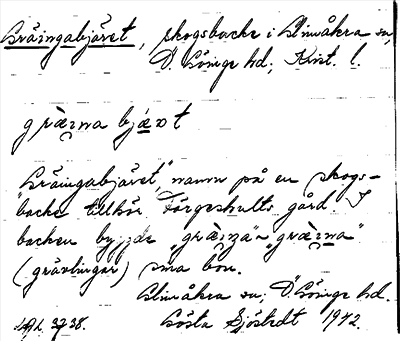 Gräingabjäret, skogsbacke i Glimåkra sn,
Ö. Göinge hd; Krist. l.
græi̯ŋa bjæ̯ət
"Gräingabjäret", namn på en skogs-
backe tillhör Förgeshults gård. I
backen byggde "græiŋa" "græiŋna"
(grävlingar) sina bon.
Glimåkra sn; Ö. Göinge hd.
Gösta Sjöstedt 1942.